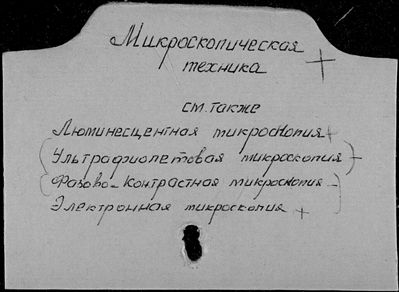 Микроскопическая +
техника
см. также
Люминесцентная микроскопия +
(Ультрафиолетовая микроскопия) +
(Фазово-контрастная микроскопия -)
Электронная микроскопия +